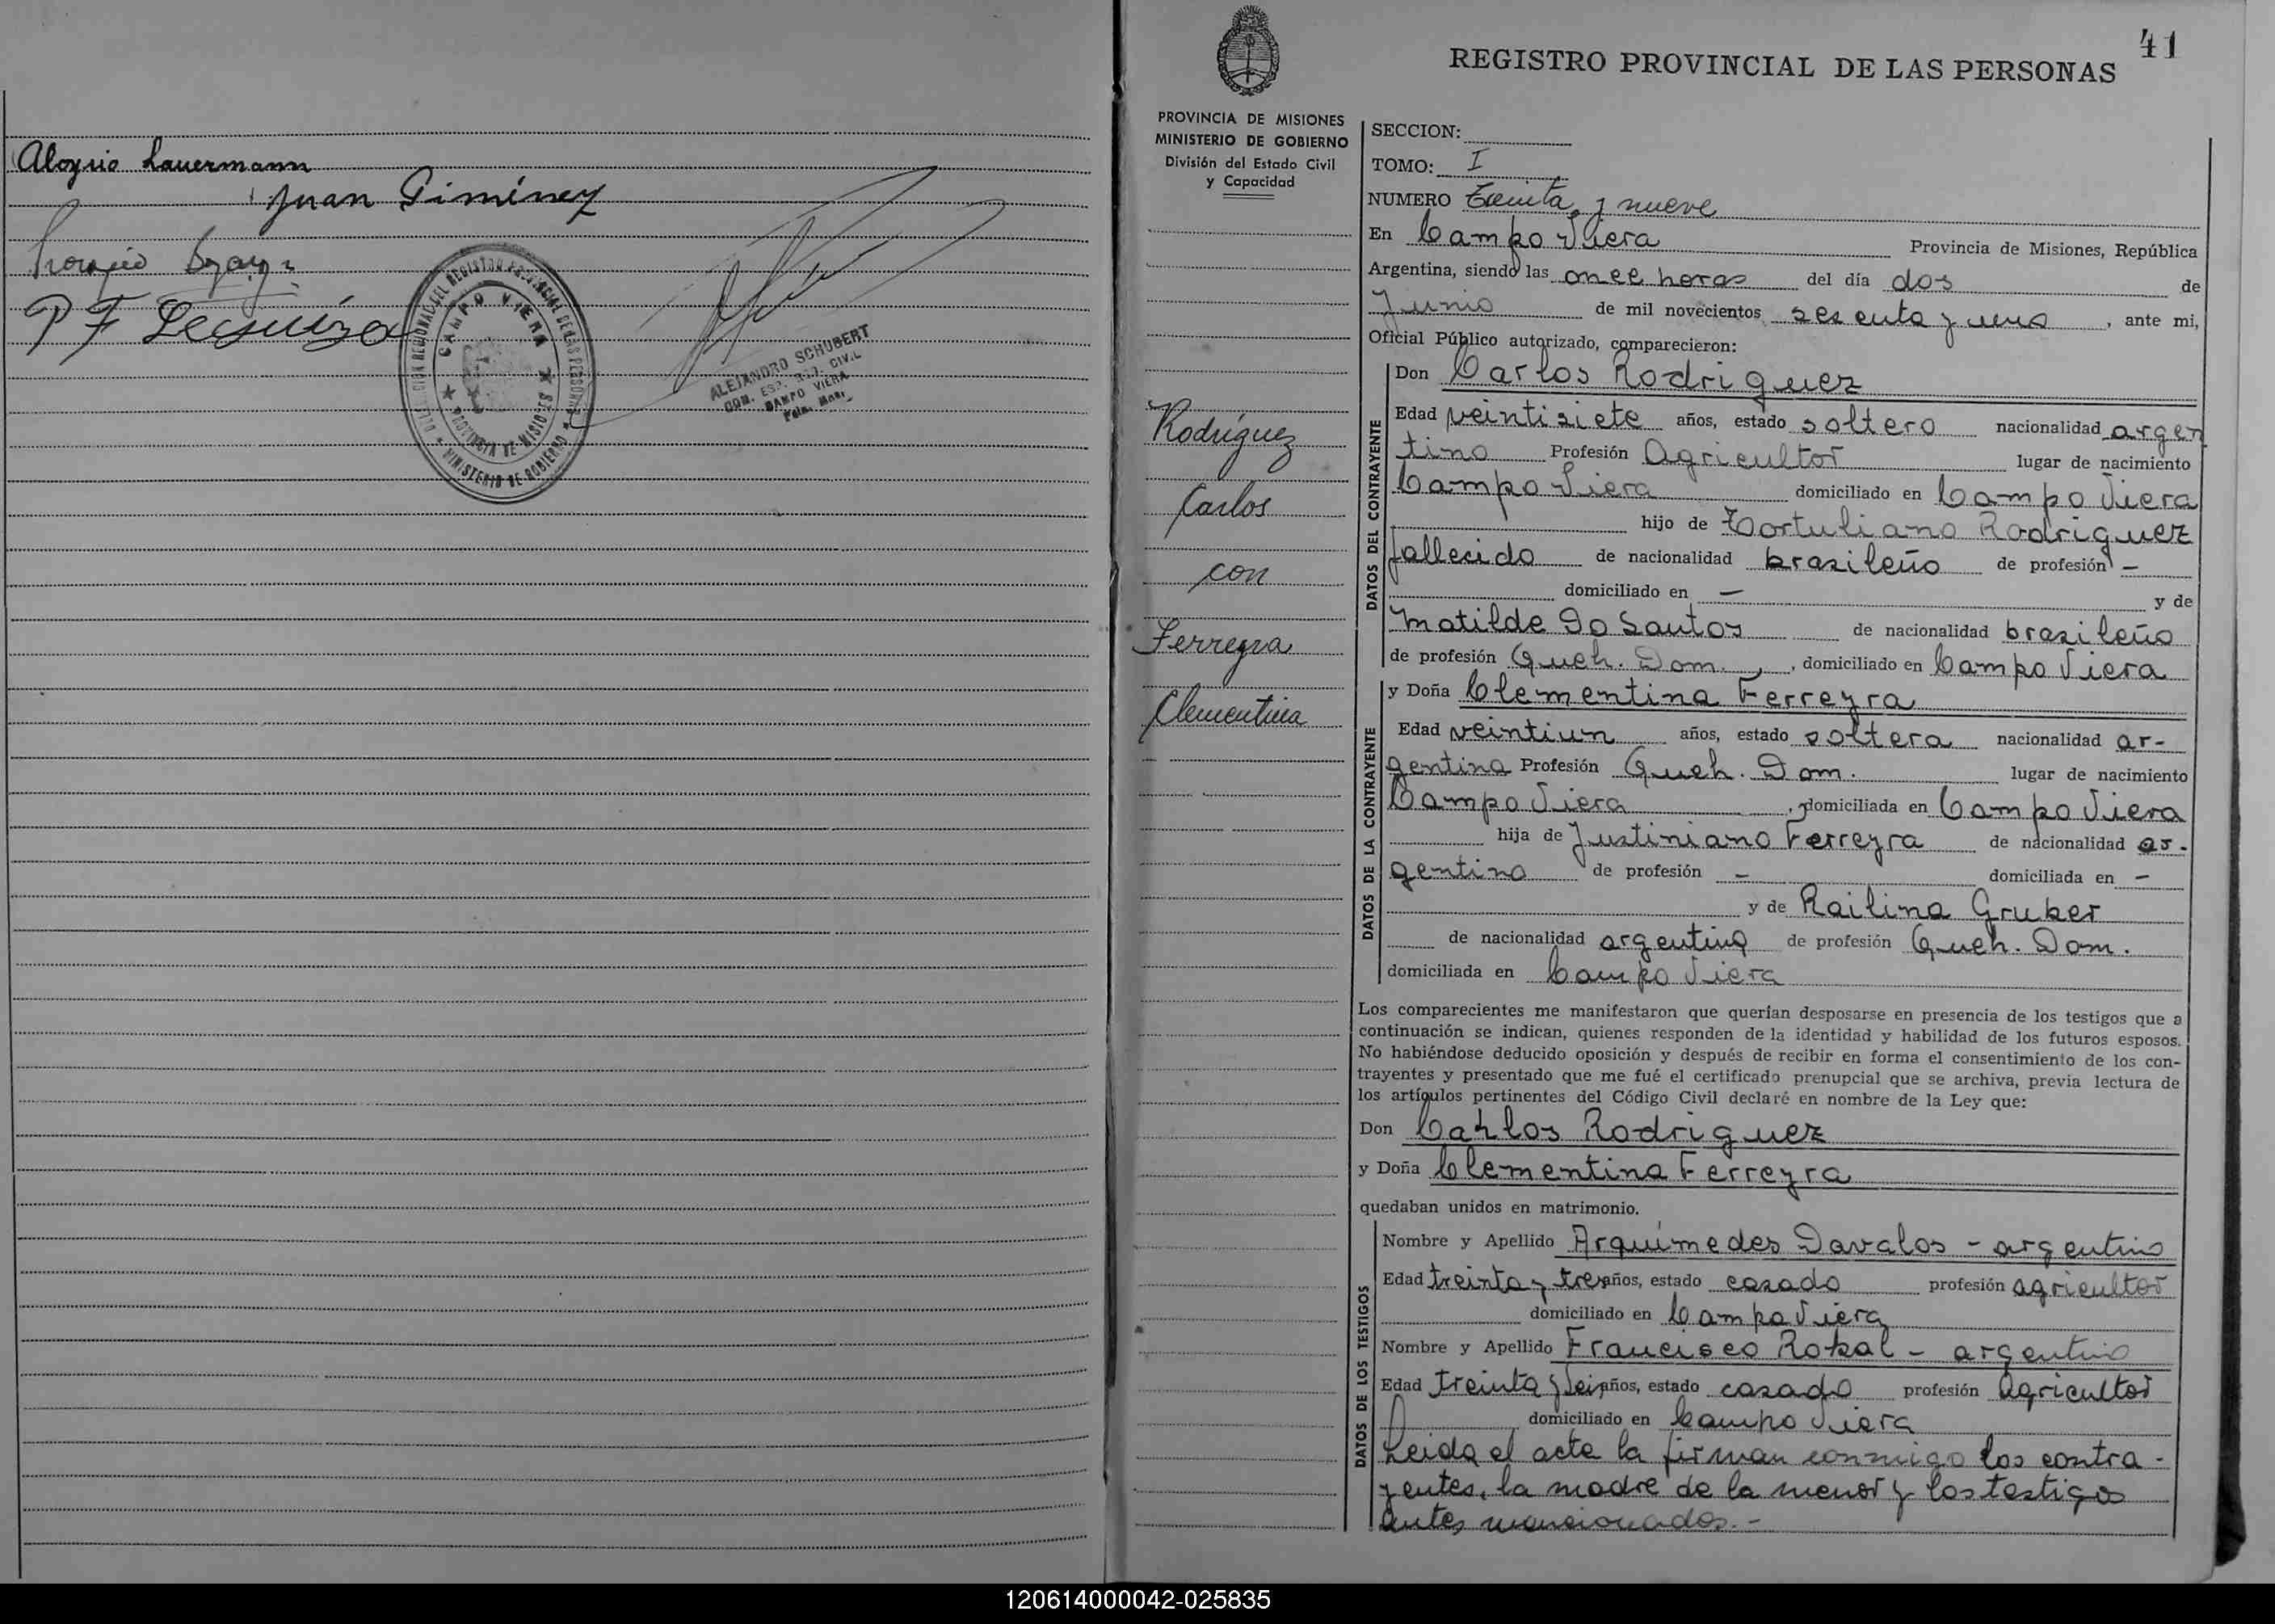 Aloysio Lauermann
Juan Giménez
P F Leguiza
DELEGACION REGIONAL DEL REGISTRO PROVINCIAL DE LAS PERSONAS
CAMPO VIERA
PROVINCIA DE MISIONES
MINISTERIO DE GOBIERNO
ALEJANDRO SCHUBERT
CAMPO VIERA
41
REGISTRO PROVINCIAL DE LAS PERSONAS
PROVINCIA DE MISIONES
MINISTERIO DE GOBIERNO
División del Estado Civil
y Capacidad
Rodríguez
Carlos
con
Ferreyra
Clementina
SECCION:
TOMO: I
NUMERO Treinta y nueve
En Campo Viera Provincia de Misiones, República
Argentina, siendo las once horas del día dos de
Junio de mil novecientos sesenta y uno, ante mi,
Oficial Público autorizado, comparecieron:
DATOS DEL CONTRAYENTE
Don Carlos Rodriguez
Edad veintisiete años, estado soltero nacionalidad argen
tino Profesión Agricultor lugar de nacimiento
Campo Viera domiciliado en Campo Viera
hijo de Tortuliano Rodriguez
fallecido de nacionalidad brasileño de profesión -
domiciliado en - y de
Matilde Do Santos de nacionalidad brasileño
de profesión Queh. Dom., domiciliado en Campo Viera
DATOS DE LA CONTRAYENTE
y Doña Clementina Ferreyra
Edad veintiun años, estado soltera nacionalidad ar-
gentina Profesión Queh. Dom. lugar de nacimiento
Campo Viera, domiciliada en Campo Viera
hija de Justiniano Ferreyra de nacionalidad ar-
gentino de profesión - domiciliada en -
y de Railina Gruber
de nacionalidad argentina de profesión Queh. Dom.
domiciliada en Campo Viera
Los comparecientes me manifestaron que querían desposarse en presencia de los testigos que a
continuación se indican, quienes responden de la identidad y habilidad de los futuros esposos.
No habiéndose deducido oposición y después de recibir en forma el consentimiento de los con-
trayentes y presentado que me fué el certificado prenupcial que se archiva, previa lectura de
los artículos pertinentes del Código Civil declaré en nombre de la Ley que:
Don Carlos Rodriguez
y Doña Clementina Ferreyra
quedaban unidos en matrimonio.
DATOS DE LOS TESTIGOS
Nombre y Apellido Arquimedes Davalos - argentino
Edad treinta y tres años, estado casado profesión agricultor
domiciliado en Campo Viera
Nombre y Apellido Francisco Rokal - argentino
Edad treinta y seis años, estado casado profesión agricultor
domiciliado en Campo Viera
Leida el acta la firman conmigo los contra-
yentes, la madre de la menor y los testigos
antes mencionados.-
120614000042-025835